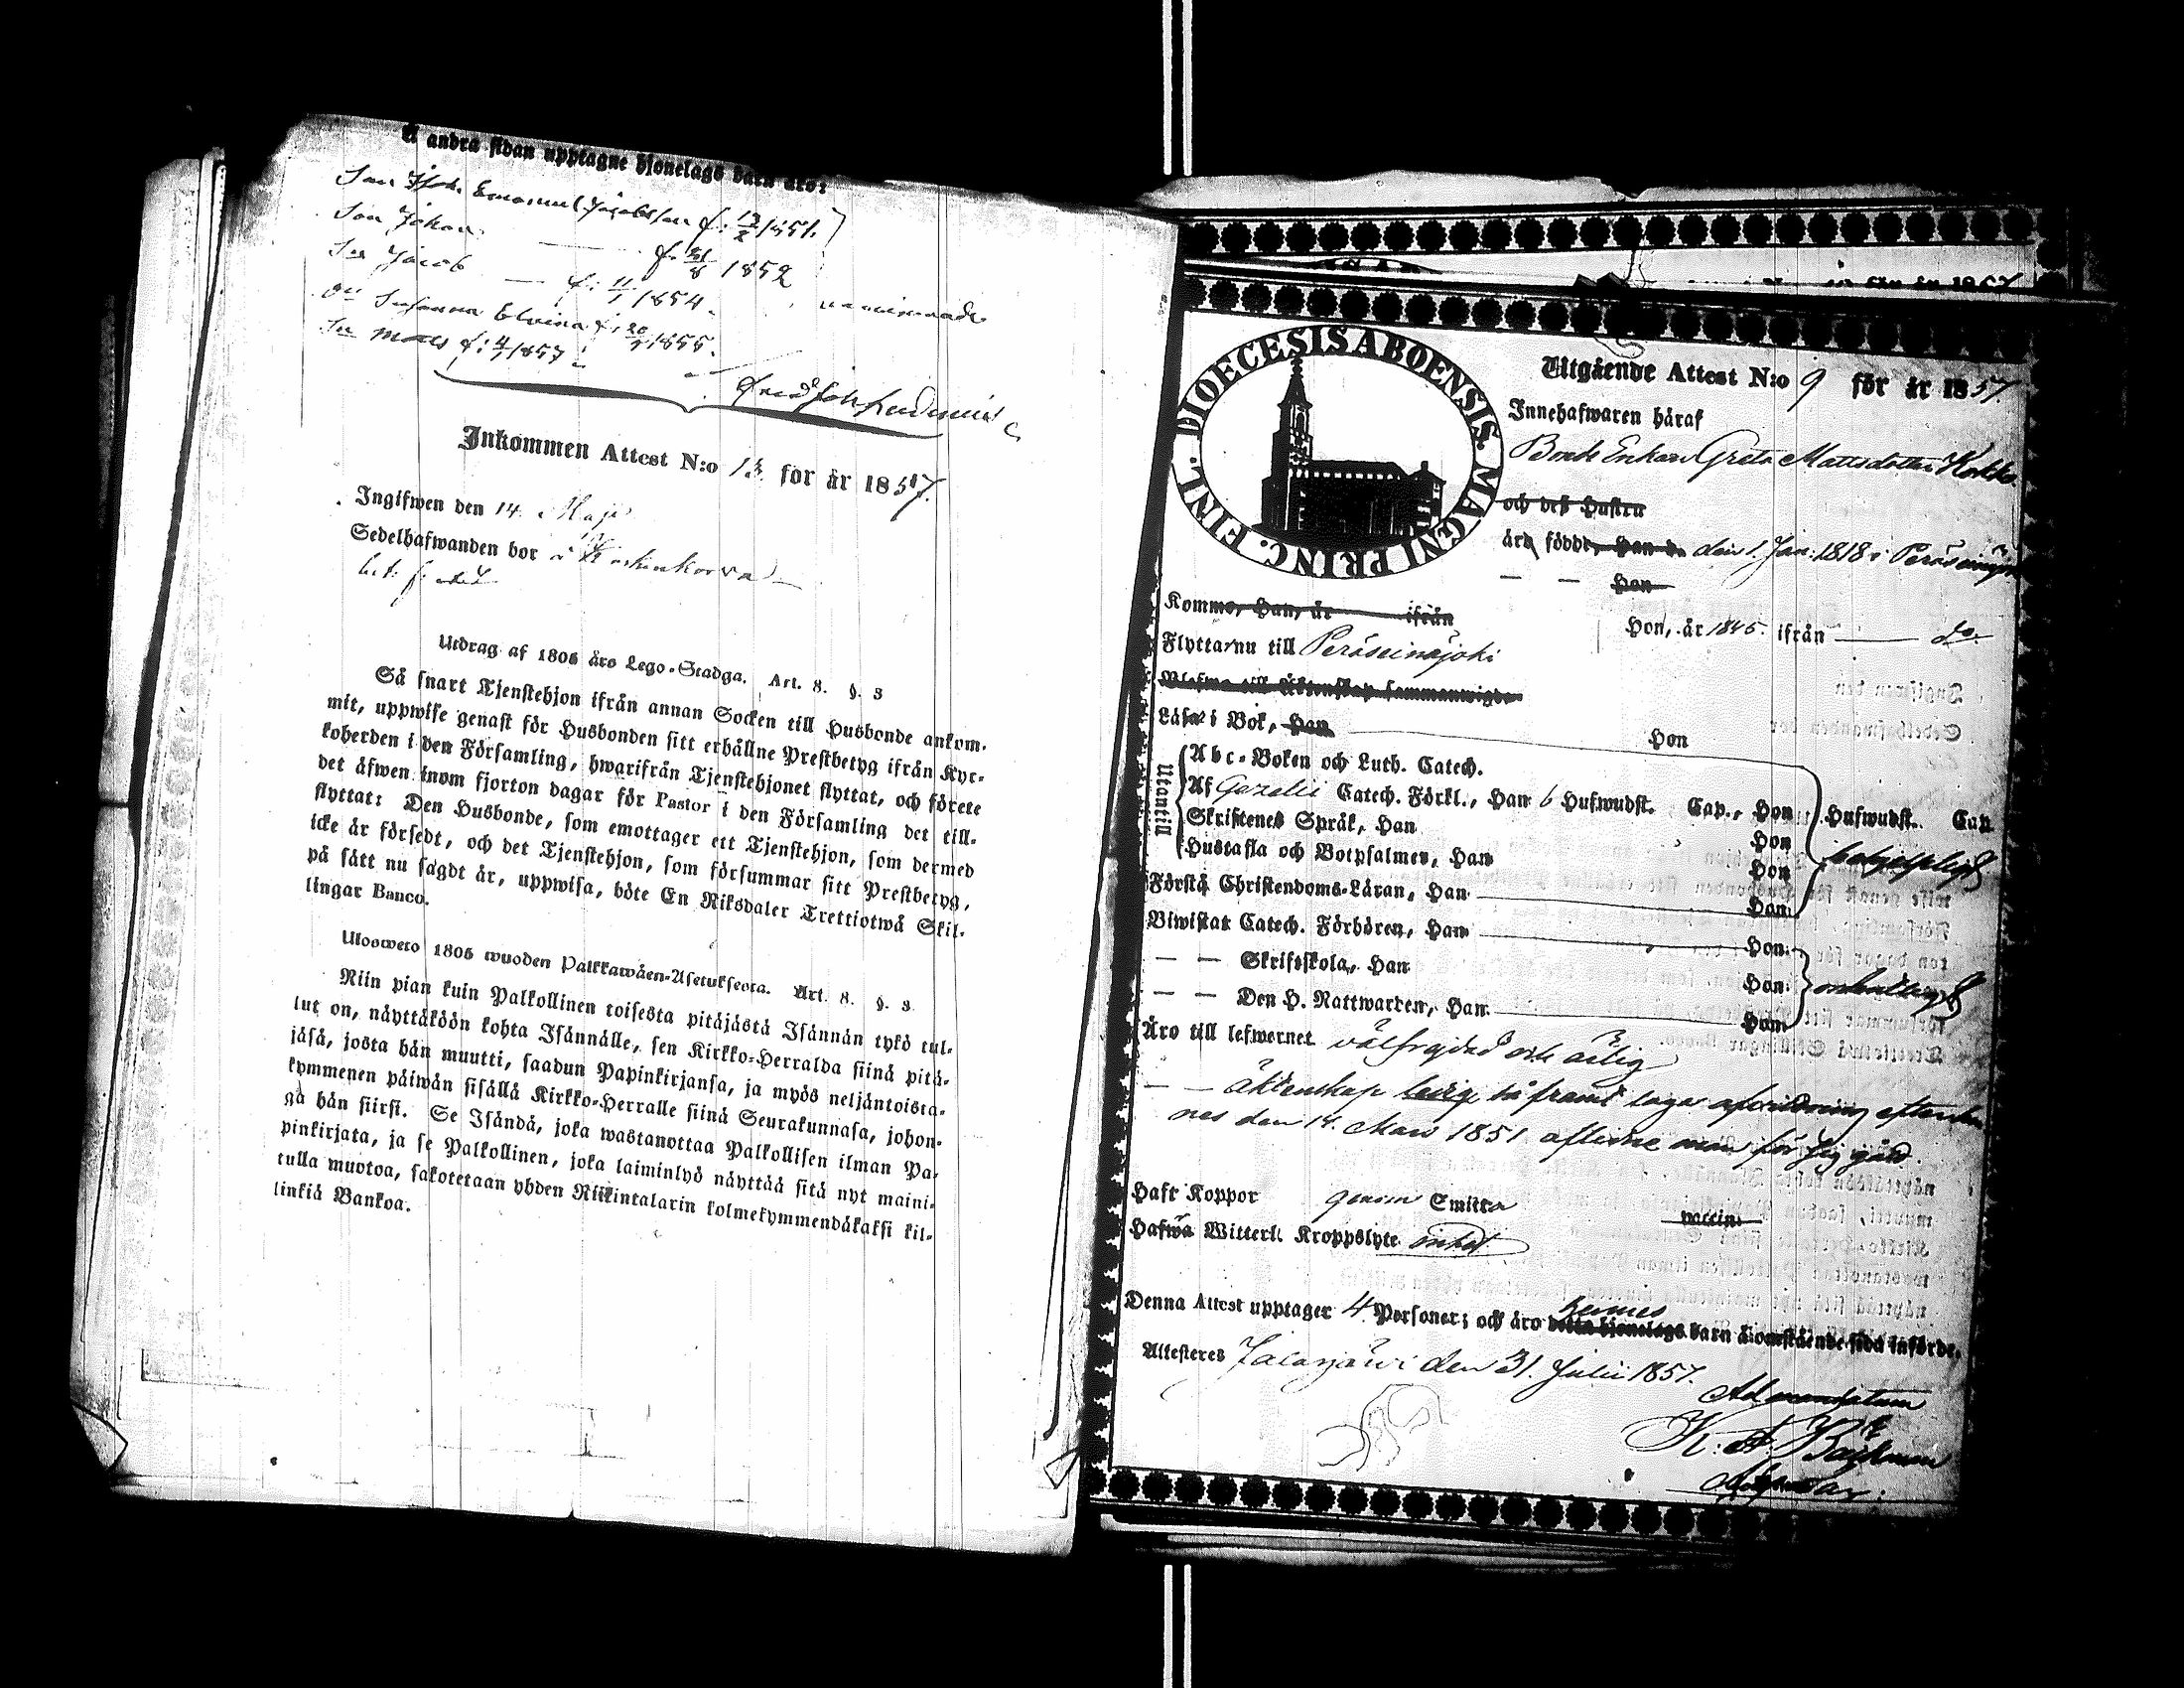 Å andra sidan upptagne hjonelags barn äro:
Son Isak Emanuel Jacobsson f: 13/2 1851.
Son Johan — f. 31/8 1852
Sn Jacob — f: 11/1 1854.
Dr Susanna Elvina f: 20/7 1855. vaccinerade
Sn Matts f: 4/1 1857
Inkommen Attest N:o 13. för år 1857.
Ingifwen den 14. Maji
Sedelhafwanden bor i Koskenkorva
Utdrag af 1805 års Lego-Stadga. Art. 8. §. 3
Så snart Tjenstehjon ifrån annan Socken till Husbonde ankom-
mit, uppwise genast för Husbonden sitt erhållne Prestbetyg ifrån Kyr-
koherden i den Församling, hwarifrån Tjenstehjonet flyttat, och förete
det äfwen inom fjorton dagar för Pastor i den Församling det till-
flyttat: Den Husbonde, som emottager ett Tjenstehjon, som dermed
icke är försedt, och det Tjenstehjon, som försummar sitt Prestbetyg,
på sätt nu sagdt är, uppwisa, böte En Riksdaler Trettiotwå Skil-
lingar Banco.
Ulosweto 1805 wuoden Palkkawäen-Asetuksesta. Art. 8. §. 3
Niin pian kuin Palkollinen toisesta pitäjästä Isännän tykö tul-
lut on, näyttäköön kohta Isännälle, sen Kirkko-Herralda siinä pitä-
jäsä, josta hän muutti, saadun Papinkirjansa, ja myös neljäntoista-
kymmenen päiwän sisällä Kirkko-Herralle siinä Seurakunnasa, johon-
ga hän siirsi. Se Isändä, joka wastanottaa Palkollisen ilman Pa-
pinkirjata, ja se Palkollinen, joka laiminlyö näyttää sitä nyt maini-
tulla muotoa, sakotetaan yhden Riikintalarin kolmekymmendäkaksi kil-
linkiä Bankoa.
DIOECESIS ABOENSIS. MAGNI PRINC. FINL.
Utgående Attest N:o 9 för år 1857.
Innehafwaren häraf
Bonde Enkan Greta Mattsdotter
och deß Hustru
äro födde, Han d. den 1. Jan. 1818 i Peräseinäjoki
— — Hon
Komme, Han, år ifrån
Hon, år 1845. ifrån — do.
Flytta nu till Peräseinäjoki
Blefwo till Äktenskap sammanwigde
Läsa i Bok, Han Hon
Utantill
Abc-Boken och Luth. Catech.
Af Gezelii Catech. Förkl., Han 6 Hufwudst. Cap., Hon Hufwudst. Cap
Skriftenes Språk, Han Hon
Hustafla och Botpsalmer, Han Hon
Förstå Christendoms-Läran, Han Hon
Biwistat Catech. Förhören, Han Hon
— — Skriftskola, Han Hon
— — Den H. Nattwarden, Han Hon
Äro till lefwernet välfrejdad och ärlig
— — äktenskap ledig så framt laga afvittring efter
nes den 14. Mars 1851 aflidne man för sig gått
Haft Koppor genom Smitta vaccin
Hafwa Witterl. Kroppslyte
Denna Attest upptager 4 Personer; och äro hennes detta hjonelags barn å omstående sida införde.
Attesteres Jalasjärvi den 31. Julii 1857.
Ad mandatum